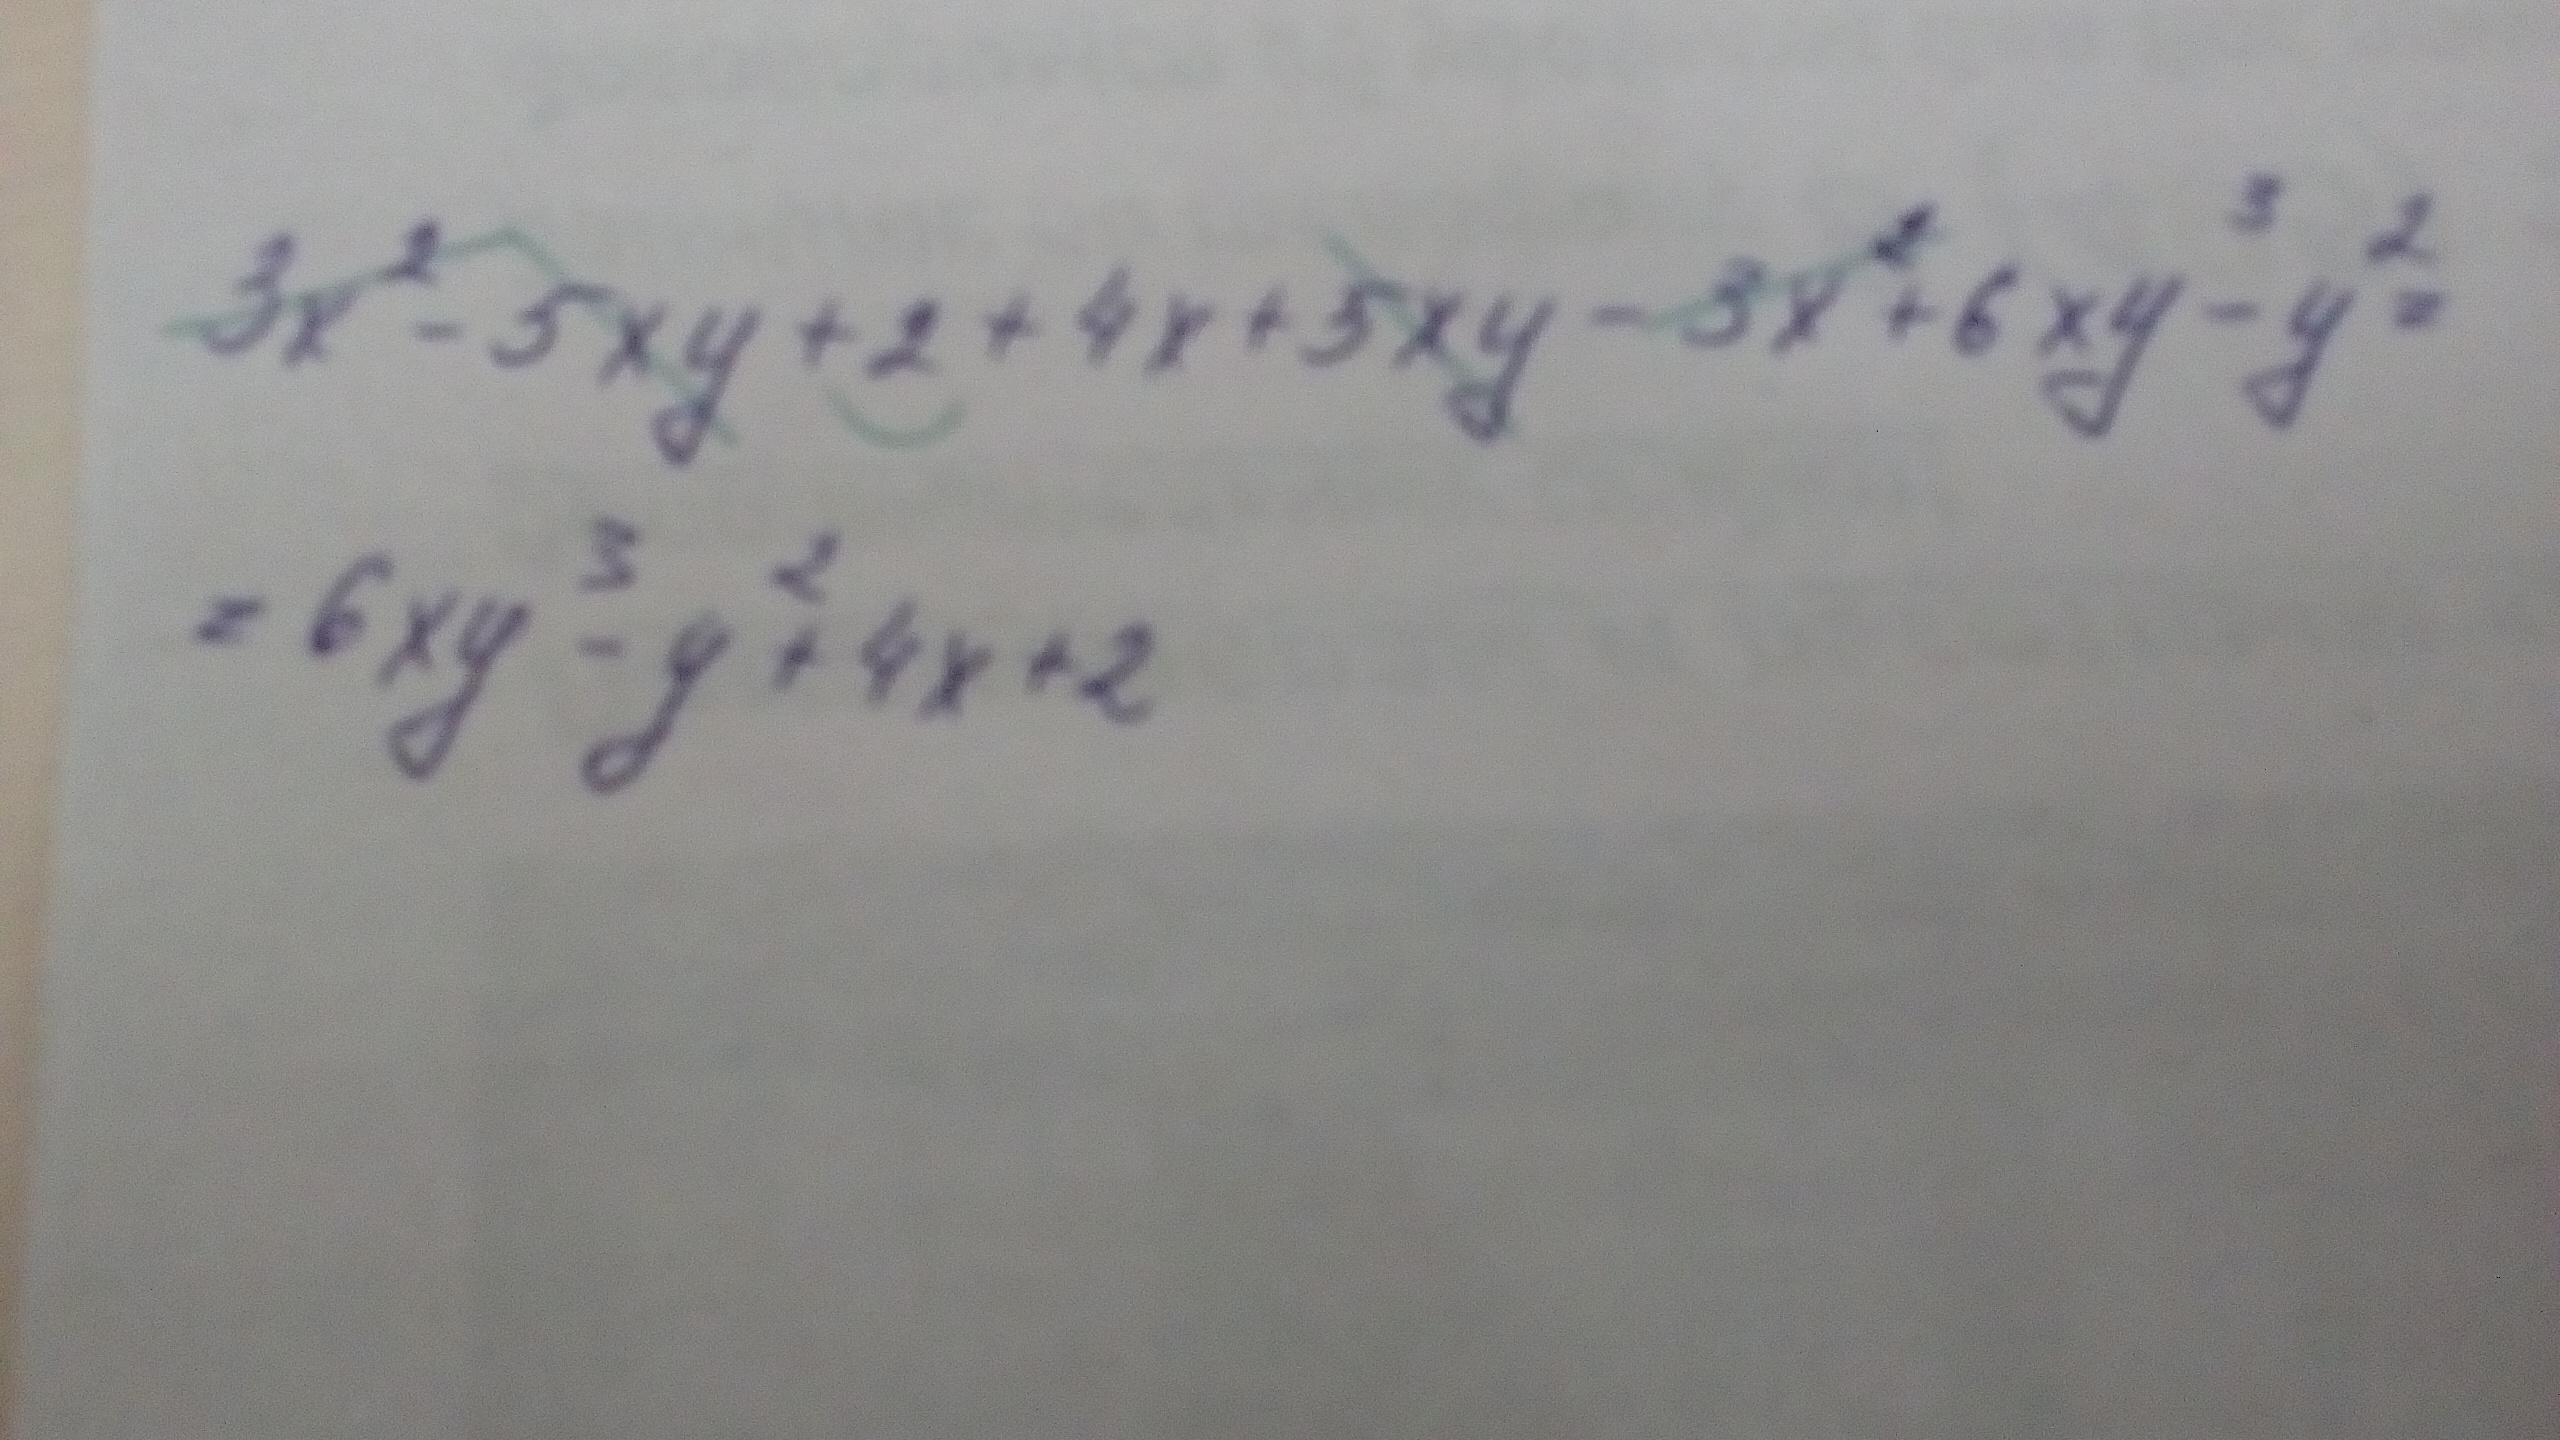 3x² - 5xy + 2 + 4x + 5xy - 3x² + 6xy³ - y² =
= 6xy³ - y² + 4x + 2